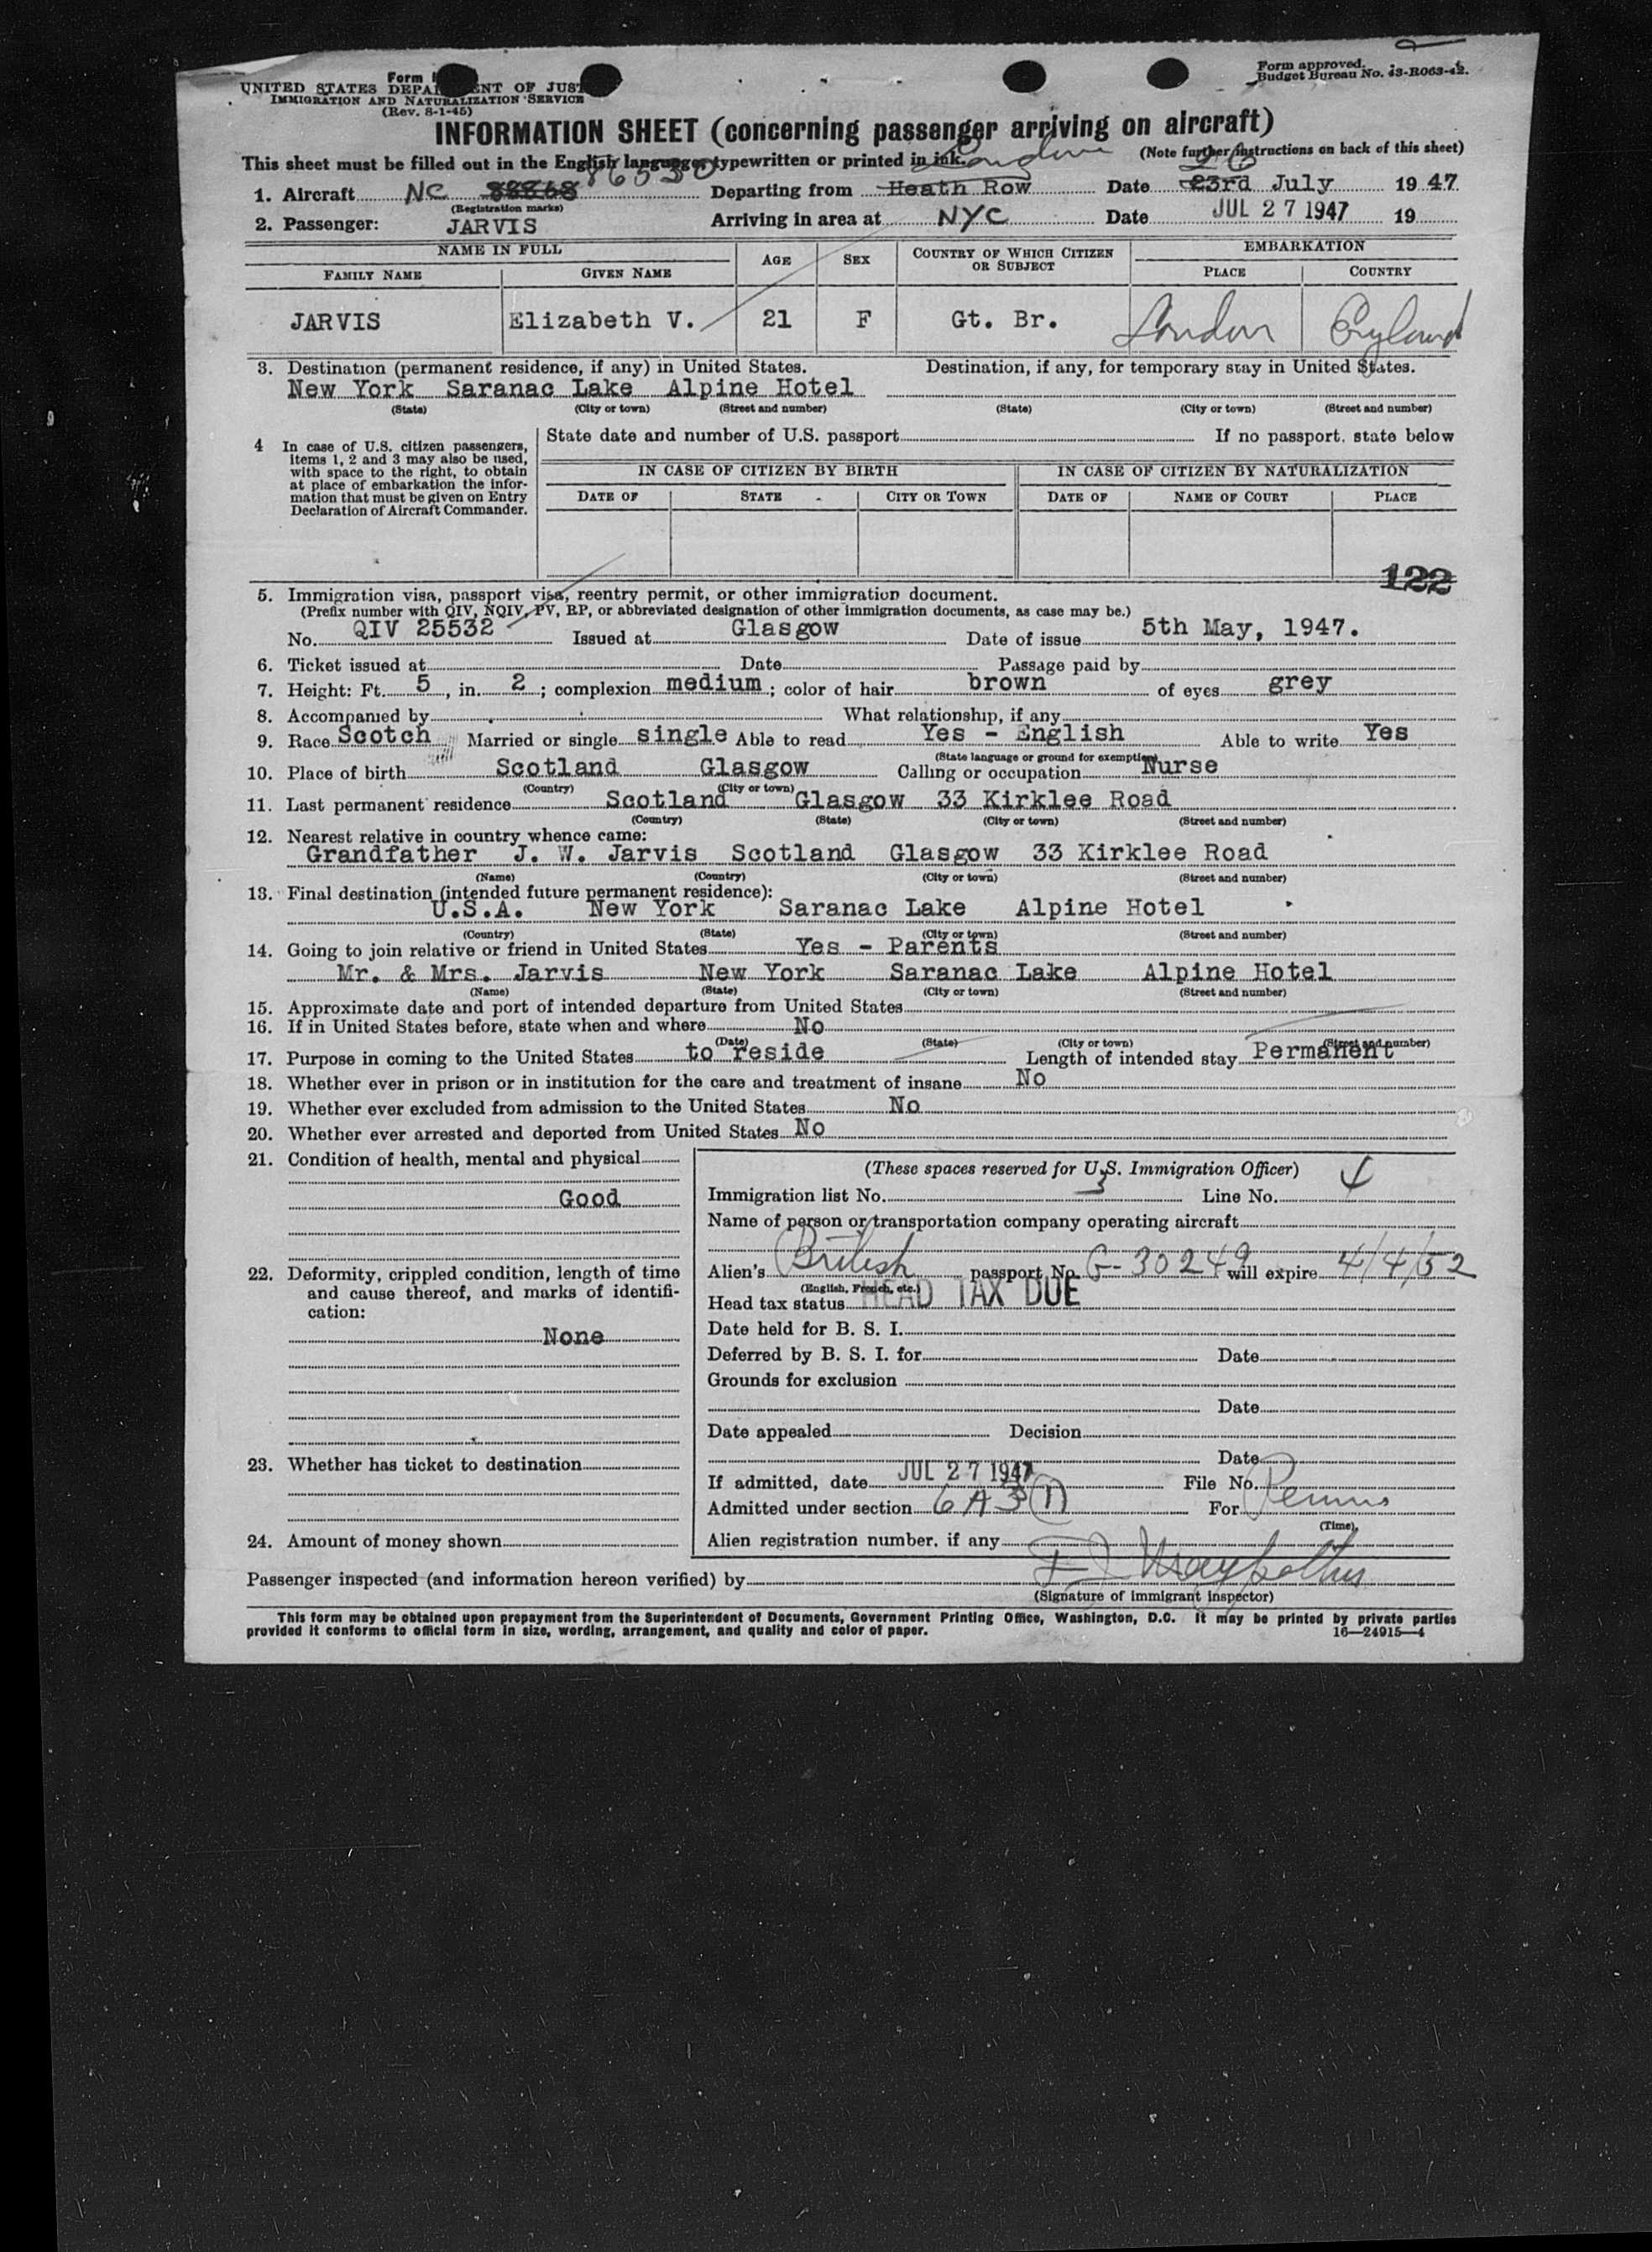 Form approved.
Budget Bureau No. 43-R063-42.
Form
UNITED STATES DEPARTMENT OF JUSTICE
IMMIGRATION AND NATURALIZATION SERVICE
(Rev. 8-1-45)
INFORMATION SHEET (concerning passenger arriving on aircraft)
This sheet must be filled out in the English language, typewritten or printed in ink. (Note further instructions on back of this sheet)
86530 London 26
1. Aircraft NC 88868 Departing from Heath Row Date 23rd July 19 47
(Registration marks)
2. Passenger: JARVIS Arriving in area at NYC Date JUL 27 1947 19
NAME IN FULL AGE SEX COUNTRY OF WHICH CITIZEN OR SUBJECT EMBARKATION
FAMILY NAME GIVEN NAME PLACE COUNTRY
JARVIS Elizabeth V. 21 F Gt. Br. London England
3. Destination (permanent residence, if any) in United States. Destination, if any, for temporary stay in United States.
New York Saranac Lake Alpine Hotel
(State) (City or town) (Street and number) (State) (City or town) (Street and number)
4 In case of U.S. citizen passengers, items 1, 2 and 3 may also be used, with space to the right, to obtain at place of embarkation the information that must be given on Entry Declaration of Aircraft Commander.
State date and number of U.S. passport If no passport, state below
IN CASE OF CITIZEN BY BIRTH IN CASE OF CITIZEN BY NATURALIZATION
DATE OF STATE CITY OR TOWN DATE OF NAME OF COURT PLACE
122
5. Immigration visa, passport visa, reentry permit, or other immigration document.
(Prefix number with QIV, NQIV, PV, RP, or abbreviated designation of other immigration documents, as case may be.)
No. QIV 25532 Issued at Glasgow Date of issue 5th May, 1947.
6. Ticket issued at Date Passage paid by
7. Height: Ft. 5, in. 2; complexion medium; color of hair brown of eyes grey
8. Accompanied by What relationship, if any
9. Race Scotch Married or single single Able to read Yes - English Able to write Yes
(State language or ground for exemption)
10. Place of birth Scotland Glasgow Calling or occupation Nurse
(Country) (City or town)
11. Last permanent residence Scotland Glasgow 33 Kirklee Road
(Country) (State) (City or town) (Street and number)
12. Nearest relative in country whence came:
Grandfather J. W. Jarvis Scotland Glasgow 33 Kirklee Road
(Name) (Country) (City or town) (Street and number)
13. Final destination (intended future permanent residence):
U.S.A. New York Saranac Lake Alpine Hotel
(Country) (State) (City or town) (Street and number)
14. Going to join relative or friend in United States Yes - Parents
Mr. & Mrs. Jarvis New York Saranac Lake Alpine Hotel
(Name) (State) (City or town) (Street and number)
15. Approximate date and port of intended departure from United States
16. If in United States before, state when and where No
(Date) (State) (City or town) (Street and number)
17. Purpose in coming to the United States to reside Length of intended stay Permanent
18. Whether ever in prison or in institution for the care and treatment of insane No
19. Whether ever excluded from admission to the United States No
20. Whether ever arrested and deported from United States No
21. Condition of health, mental and physical
Good
22. Deformity, crippled condition, length of time and cause thereof, and marks of identification:
None
23. Whether has ticket to destination
24. Amount of money shown
(These spaces reserved for U.S. Immigration Officer)
Immigration list No. 3 Line No. 4
Name of person or transportation company operating aircraft
Alien's British passport No. G-30249 will expire 4/4/52
(English, French, etc.)
Head tax status HEAD TAX DUE
Date held for B. S. I.
Deferred by B. S. I. for Date
Grounds for exclusion
Date
Date appealed Decision
Date
If admitted, date JUL 27 1947 File No.
Admitted under section 6A3(1) For
(Time)
Alien registration number, if any
Passenger inspected (and information hereon verified) by
(Signature of immigrant inspector)
This form may be obtained upon prepayment from the Superintendent of Documents, Government Printing Office, Washington, D.C. It may be printed by private parties
provided it conforms to official form in size, wording, arrangement, and quality and color of paper. 16—24915—4